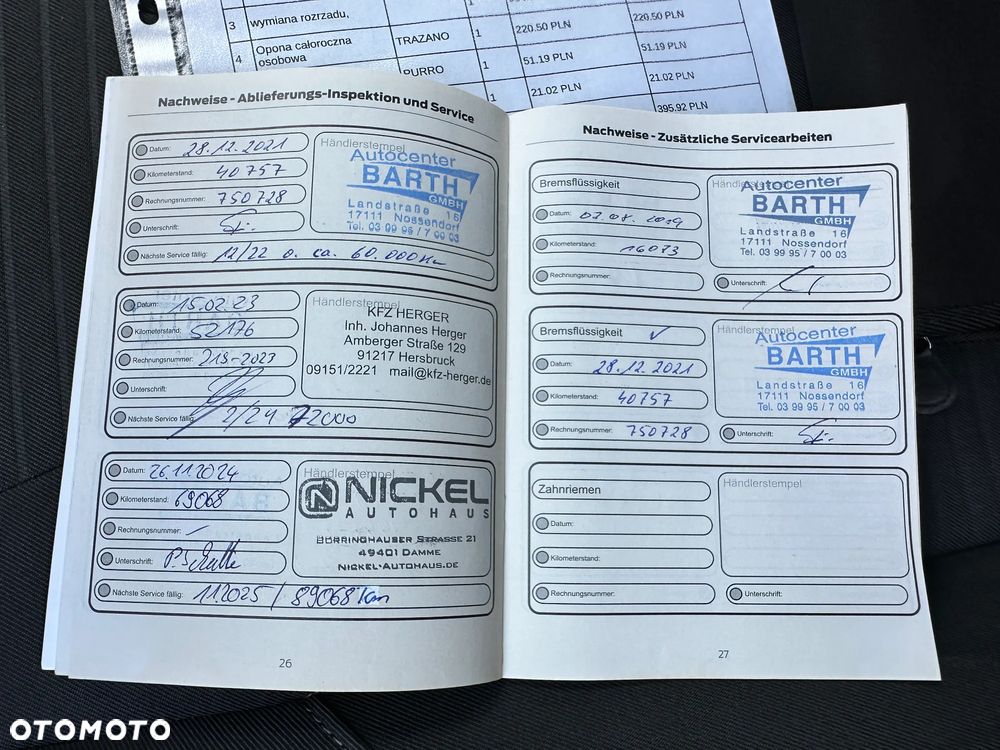 3 wymiana rozrządu, 1 220.50 PLN 220.50 PLN
4 Opona całoroczna osobowa TRAZANO 1 51.19 PLN 51.19 PLN
PURRO 1 21.02 PLN 21.02 PLN
395.92 PLN
Nachweise - Ablieferungs-Inspektion und Service
Datum: 28.12.2021
Kilometerstand: 40757
Rechnungsnummer: 750728
Unterschrift:
Nächste Service fällig: 12/22 o. ca. 60.000Km
Händlerstempel
Autocenter
BARTH
GMBH
Landstraße 16
17111 Nossendorf
Tel. 03 99 95 / 7 00 03
Datum: 15.02.23
Kilometerstand: 52176
Rechnungsnummer: 219-2023
Unterschrift:
Nächste Service fällig: 2/24 72000
Händlerstempel
KFZ HERGER
Inh. Johannes Herger
Amberger Straße 129
91217 Hersbruck
09151/2221 mail@kfz-herger.de
Datum: 26.11.2024
Kilometerstand: 69068
Rechnungsnummer: -
Unterschrift:
Nächste Service fällig: 11.2025 / 89068 Km
Händlerstempel
NICKEL
AUTOHAUS
BORRINGHAUSER STRASSE 21
49401 DAMME
NICKEL-AUTOHAUS.DE
26
Nachweise - Zusätzliche Servicearbeiten
Bremsflüssigkeit
Datum: 07.08.2019
Kilometerstand: 16073
Rechnungsnummer:
Händlerstempel
Autocenter
BARTH
GMBH
Landstraße 16
17111 Nossendorf
Tel. 03 99 95 / 7 00 03
Unterschrift:
Bremsflüssigkeit ✓
Datum: 28.12.2021
Kilometerstand: 40757
Rechnungsnummer: 750728
Händlerstempel
Autocenter
BARTH
GMBH
Landstraße 16
17111 Nossendorf
Tel. 03 99 95 / 7 00 03
Unterschrift:
Zahnriemen
Datum:
Kilometerstand:
Rechnungsnummer:
Händlerstempel
Unterschrift:
27
OTOMOTO